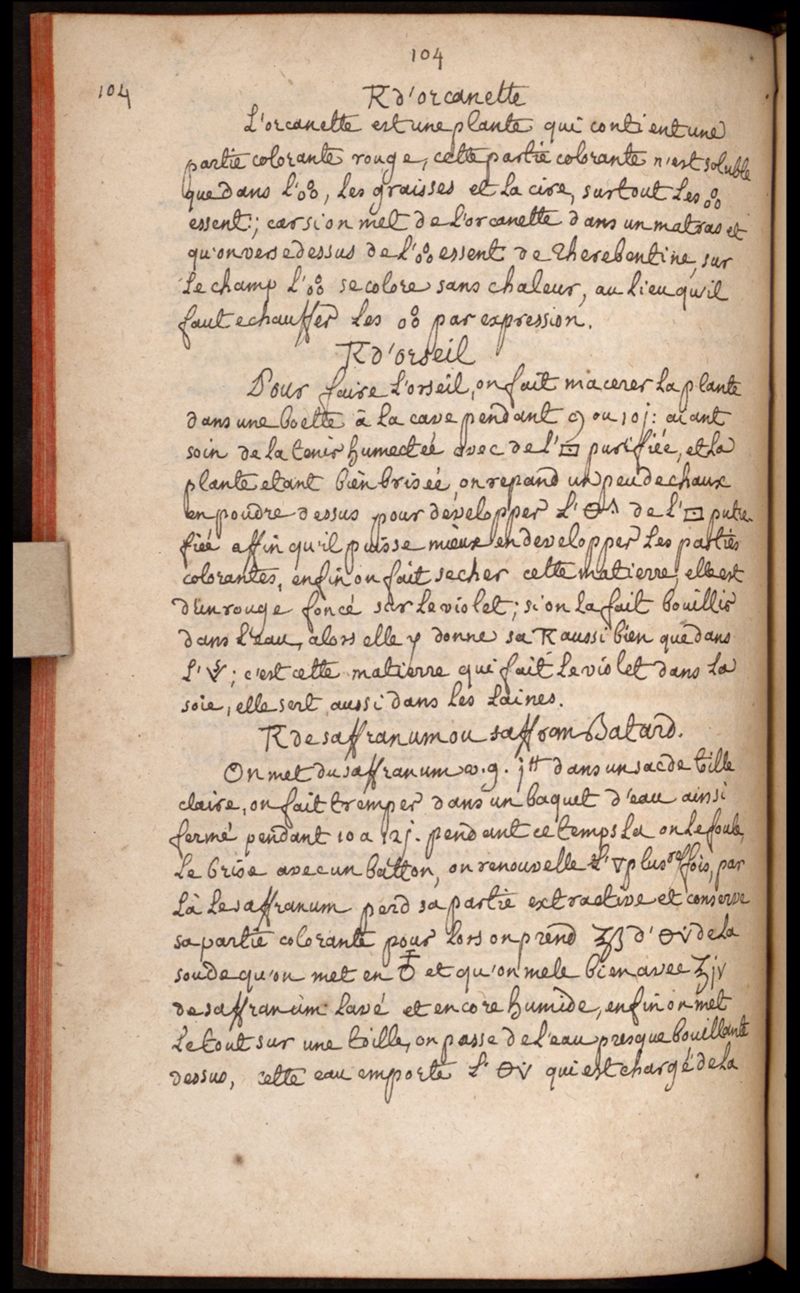 104
104
R d'orcanette
L'orcanette est une plante qui contient une
partie colorante rouge, cette partie colorante n'est soluble
que dans l'o°o, les graisses et la cire, surtout les o°o
essent: ; car si on met de l'orcanette dans un matras et
qu'on verse dessus de l'o°o essent: de Therebentine, sur
le champ l'o°o se colore sans chaleur, au lieu qu'il
faut echauffer les o°o par expression.
R d'orseil
Pour faire l'orseil, on fait macerer la plante
dans une boette à la cave pendant 9 ou 10 j: aiant
soin de la tenir humectée avec de l'□ purifiée, et la
plante etant bien brisée, on repand un peu de chaux
en poudre dessus pour developper l'🜔^ de l'□ putre-
fiée affin qu'il puisse mieux en developper les parties
colorantes, enfin on fait secher cette matierre, elle est
d'un rouge foncé sur le violet; si on la fait bouillir
dans l'eau, alors elle y donne sa R aussi bien que dans
l' ; c'est cette matierre qui fait le violet dans la
soie, elle sert aussi dans les laines.
R de saffranum ou saffran Batard.
On met du saffranum v.g. j℔ dans un sac de tille
claire, on fait tremper dans un baquet d'eau ainsi
fermé pendant 10 a 12 j. pendant ce temps la on le foule,
le brise avec un batton, on renouvelle l'▽ plus.rs fois, par
là le saffranum perd sa partie extractive et conserve
sa partie colorante pour lors on prend ʒβ d'🜔v de la
soude qu'on met en et qu'on mele bien avec ʒjv
de saffranum lavé et encore humide, enfin on met
le tout sur une toille, on passe de l'eau presque bouillante
dessus, cette eau emporte l' 🜔v qui est chargé de la